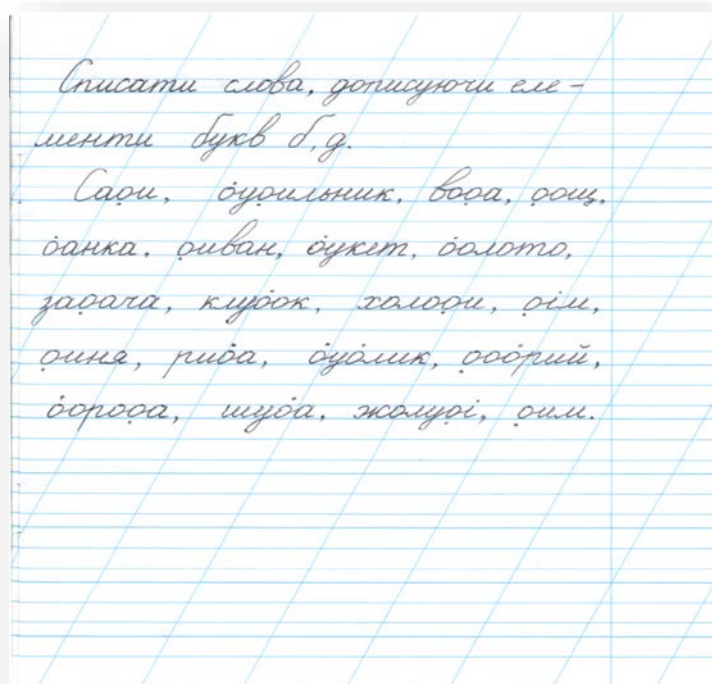 Списати слова, дописуючи еле-
менти букв б, д.
Сао̣и, о̇уо̣ильник, воо̣а, о̣ощ.
о̇анка. о̣иван, о̇укет, о̇олото,
зао̣ача, клуо̇ок, холоо̣и, о̣ім,
о̣иня, рио̇а, о̇уо̇лик, о̣оо̇рий,
о̇ороо̣а, шуо̇а, жолуо̣і, о̣им.